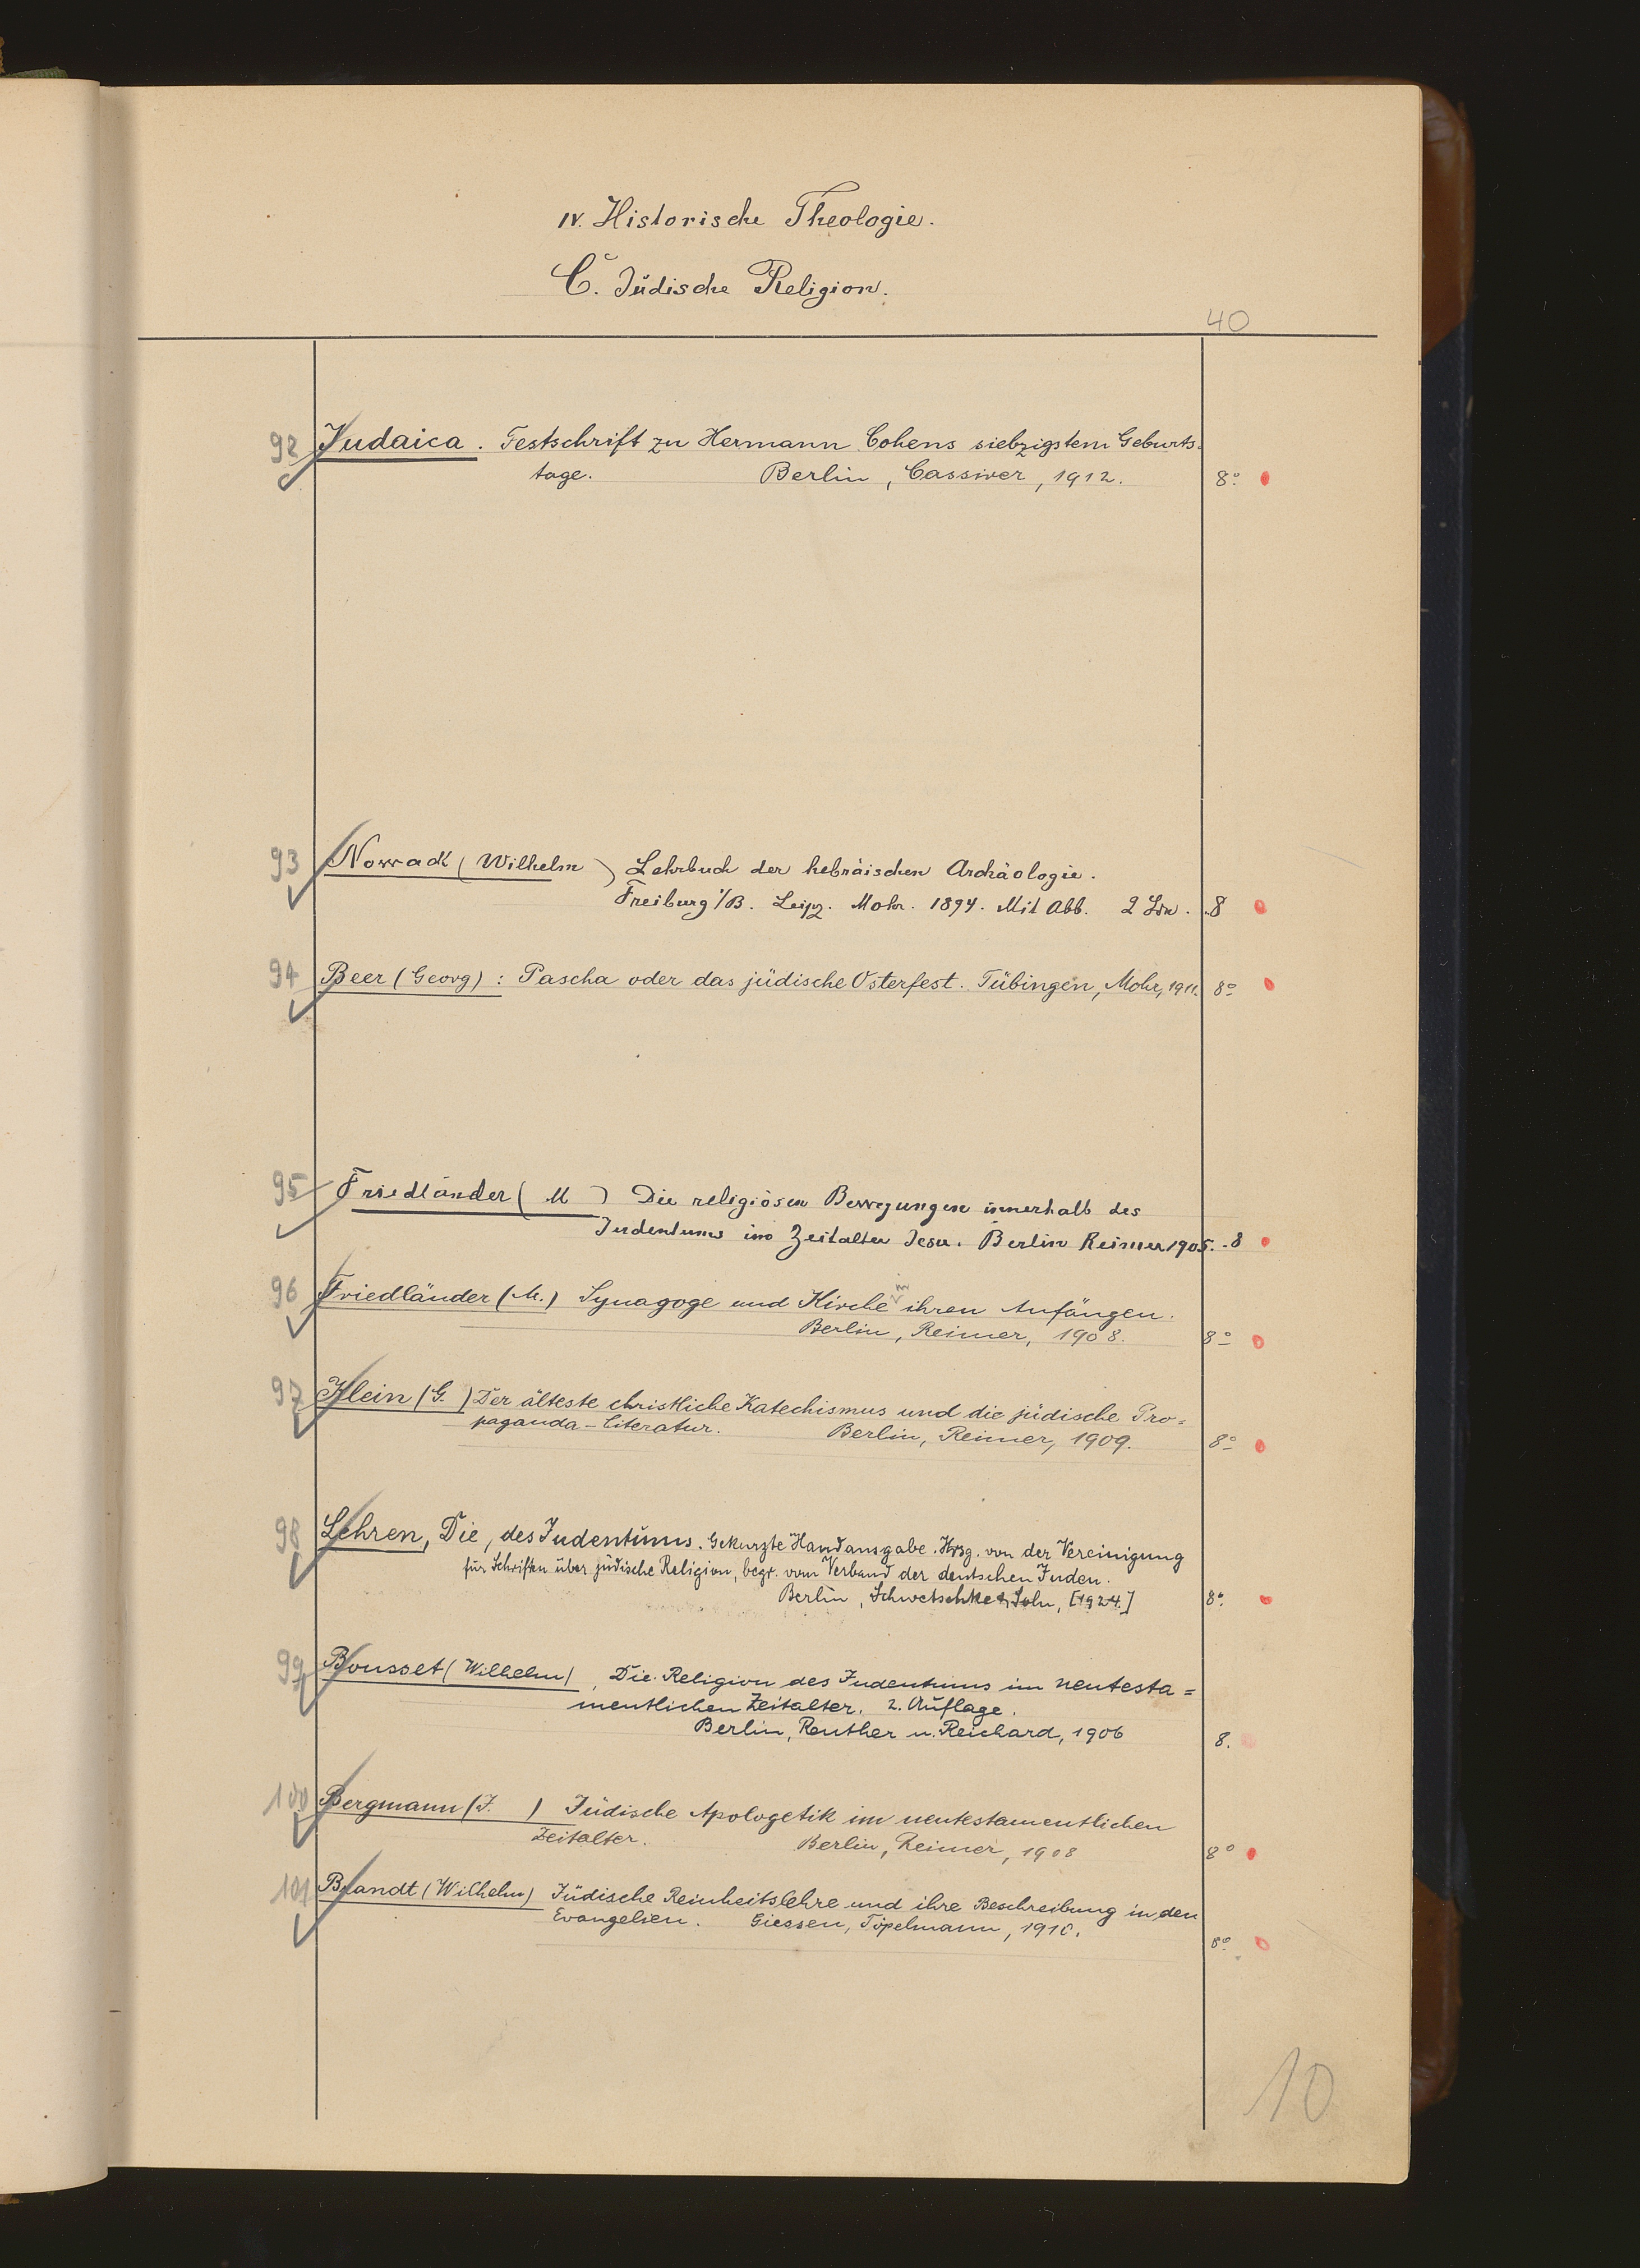 IV. Historische Theologie.
C. Jüdische Religion.
40
92 Judaica. Festschrift zu Hermann Cohens siebzigstem Geburts-
tage. Berlin, Cassirer, 1912. 8°
93 Nowack (Wilhelm) Lehrbuch der hebräischen Archäologie.
Freiburg i/B. Leipz. Mohr. 1894. Mit Abb. 2 Bde. 8
94 Beer (Georg): Pascha oder das jüdische Osterfest. Tübingen, Mohr, 1911. 8°
95 Friedländer (M ) Die religiösen Bewegungen innerhalb des
Judentums im Zeitalter Jesu. Berlin Reimer 1905. 8
96 Friedländer (M.) Synagoge und Kirche in ihren Anfängen.
Berlin, Reimer, 1908. 8°
97 Klein (G. ) Der älteste christliche Katechismus und die jüdische Pro=
paganda-Literatur. Berlin, Reimer, 1909. 8°
98 Lehren, Die, des Judentums. Gekürzte Handausgabe. Hrsg. von der Vereinigung
für Schriften über jüdische Religion, begr. vom Verband der deutschen Juden.
Berlin, Schwetschke & Sohn, [1924.] 8°
99 Bousset (Wilhelm), Die Religion des Judentums im neutesta=
mentlichen Zeitalter. 2. Auflage.
Berlin, Reuther u. Reichard, 1906 8.
100 Bergmann (J. ) Jüdische Apologetik im neutestamentlichen
Zeitalter. Berlin, Reimer, 1908 8°
101 Brandt (Wilhelm) Jüdische Reinheitslehre und ihre Beschreibung in den
Evangelien. Giessen, Töpelmann, 1910. 8°
10